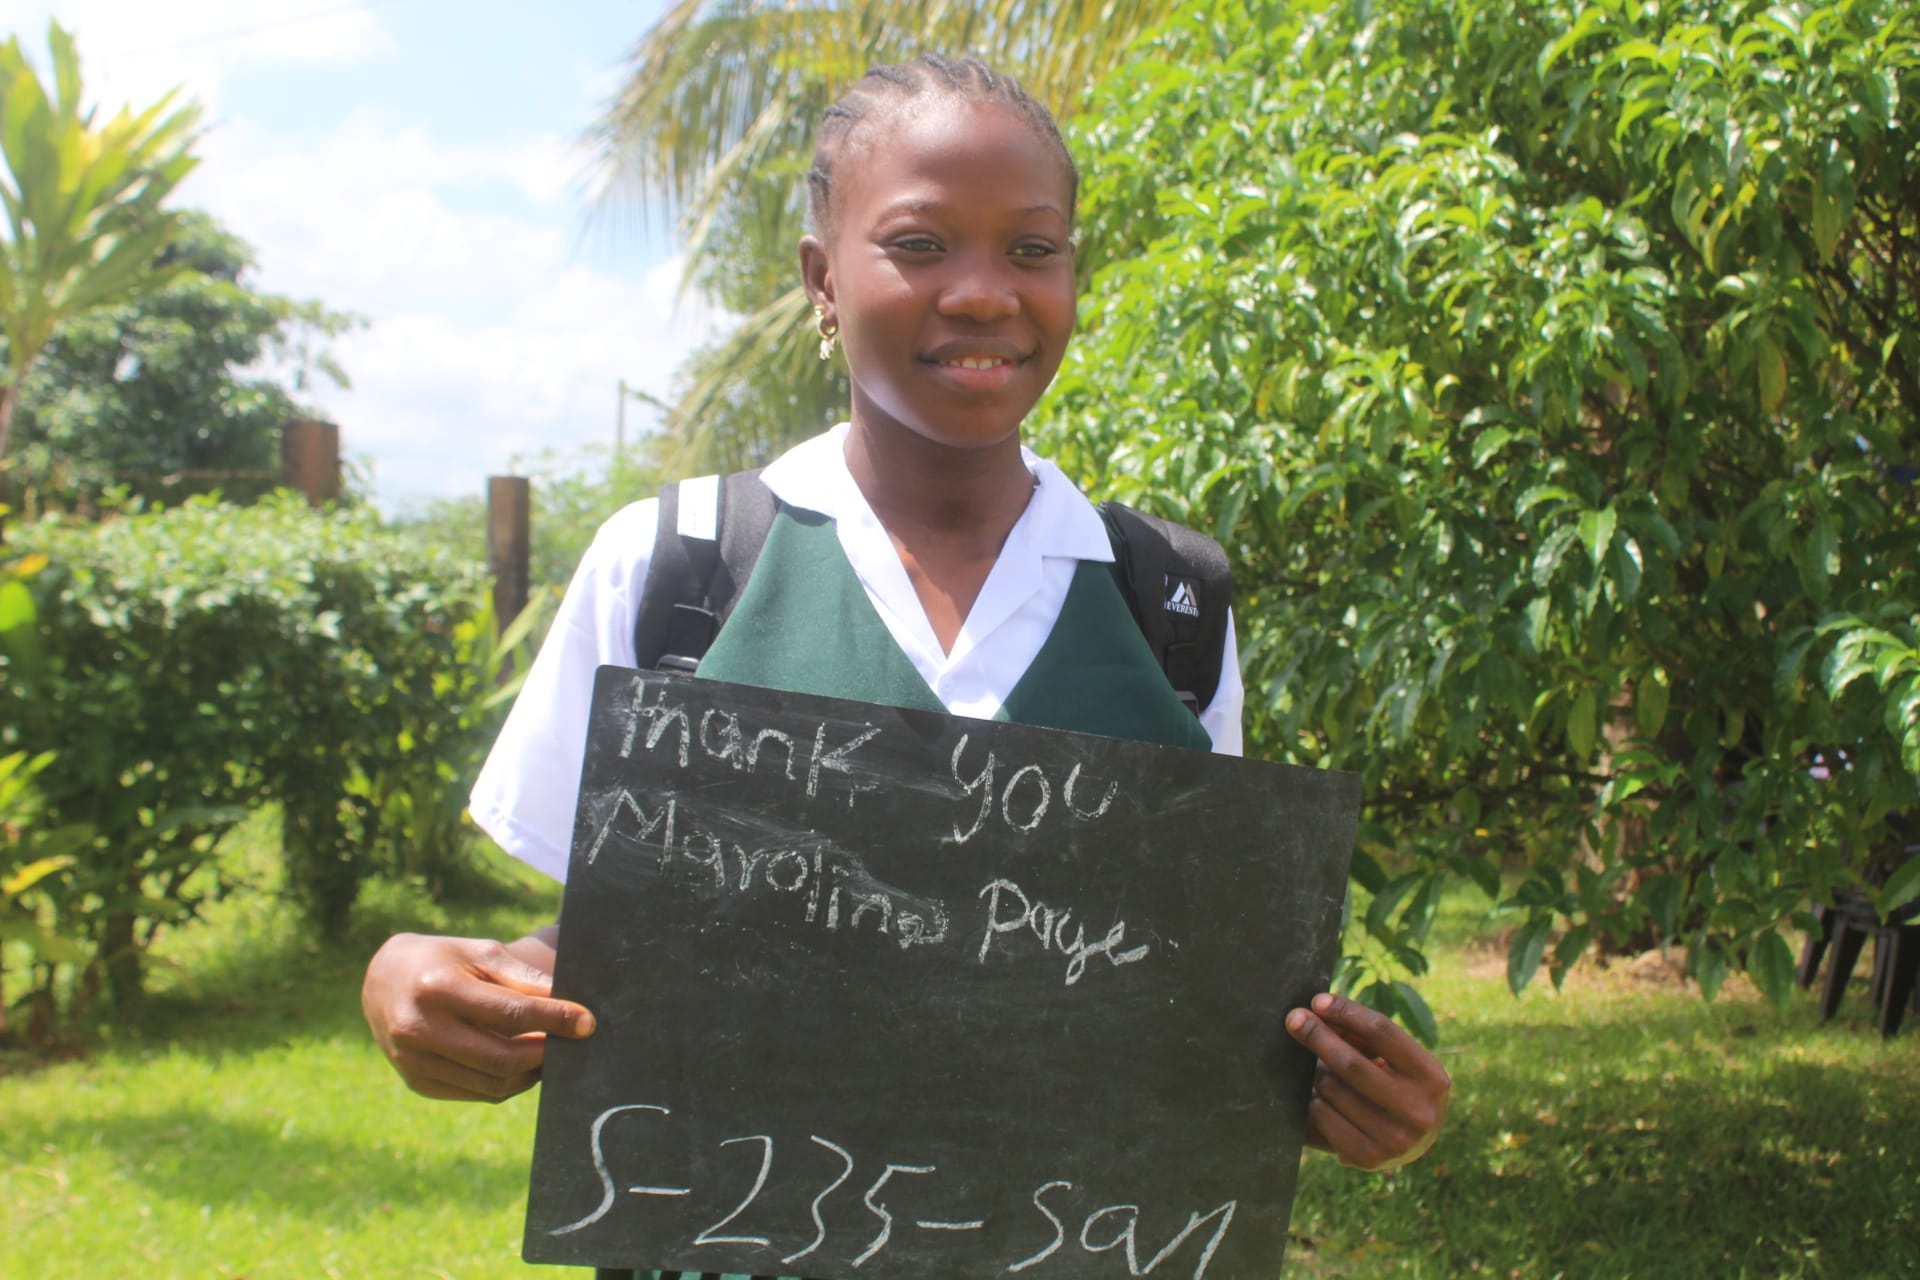 EVEREST
Thank you
Maroline Paye
S-235-San